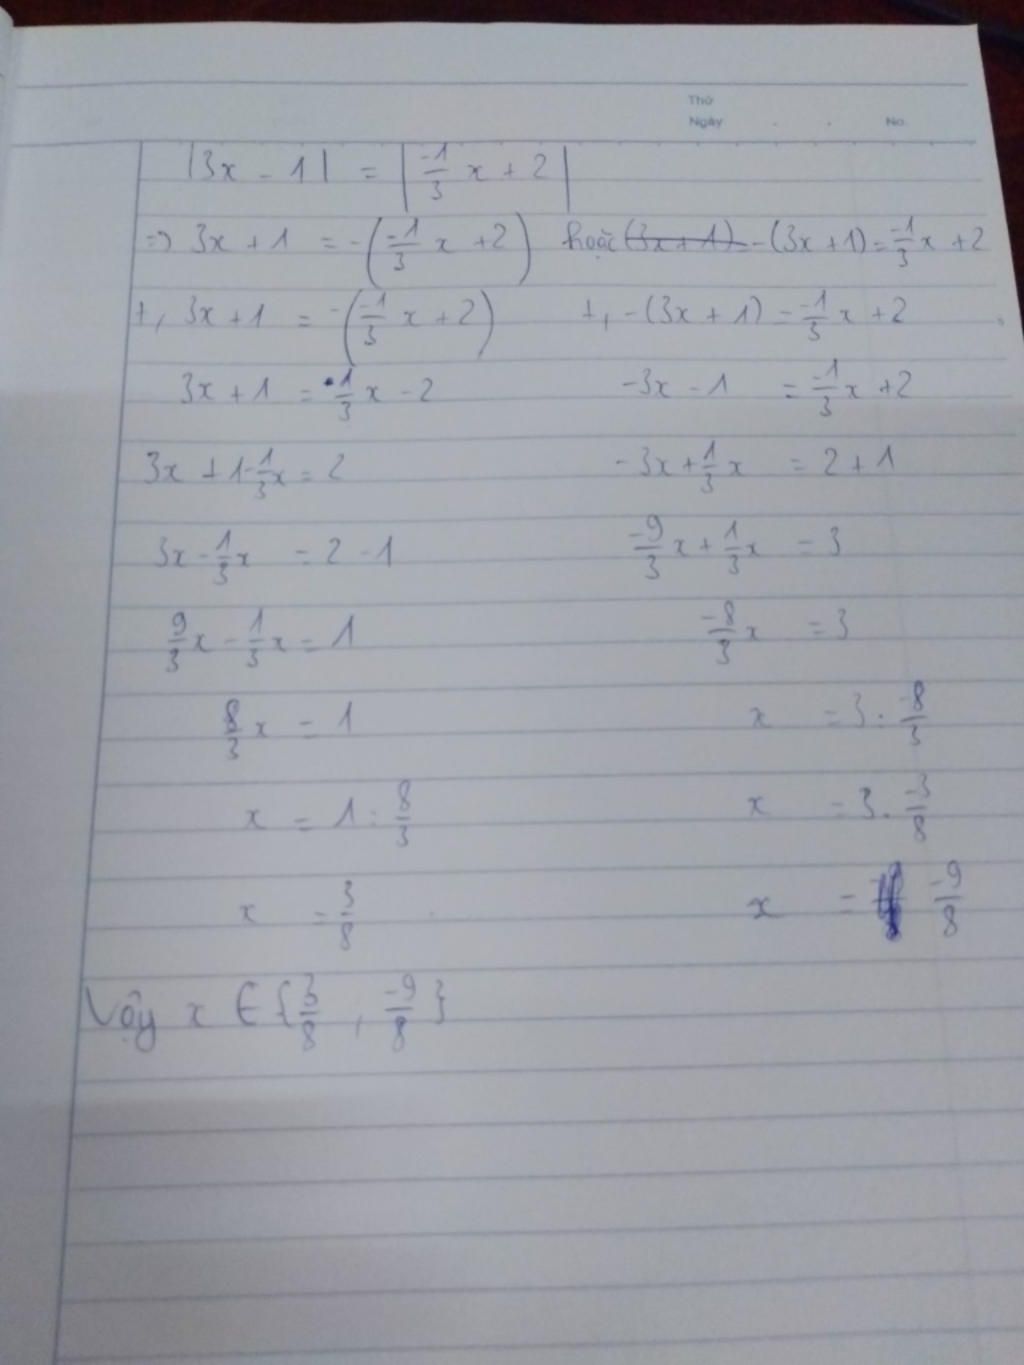 Thứ
Ngày No.
|3x - 1| = |\frac{-1}{3}x + 2|
=> 3x + 1 = -(\frac{-1}{3}x + 2) hoặc -(3x + 1) = \frac{-1}{3}x + 2
+, 3x + 1 = -(\frac{-1}{3}x + 2) +, -(3x + 1) = \frac{-1}{3}x + 2
3x + 1 = \frac{1}{3}x - 2 -3x - 1 = \frac{-1}{3}x + 2
3x + 1 - \frac{1}{3}x = 2 -3x + \frac{1}{3}x = 2 + 1
3x - \frac{1}{3}x = 2 - 1 \frac{-9}{3}x + \frac{1}{3}x = 3
\frac{9}{3}x - \frac{1}{3}x = 1 \frac{-8}{3}x = 3
\frac{8}{3}x = 1 x = 3 : \frac{-8}{3}
x = 1 : \frac{8}{3} x = 3 . \frac{-3}{8}
x = \frac{3}{8} x = \frac{-9}{8}
Vậy x ∈ {\frac{3}{8} , \frac{-9}{8}}